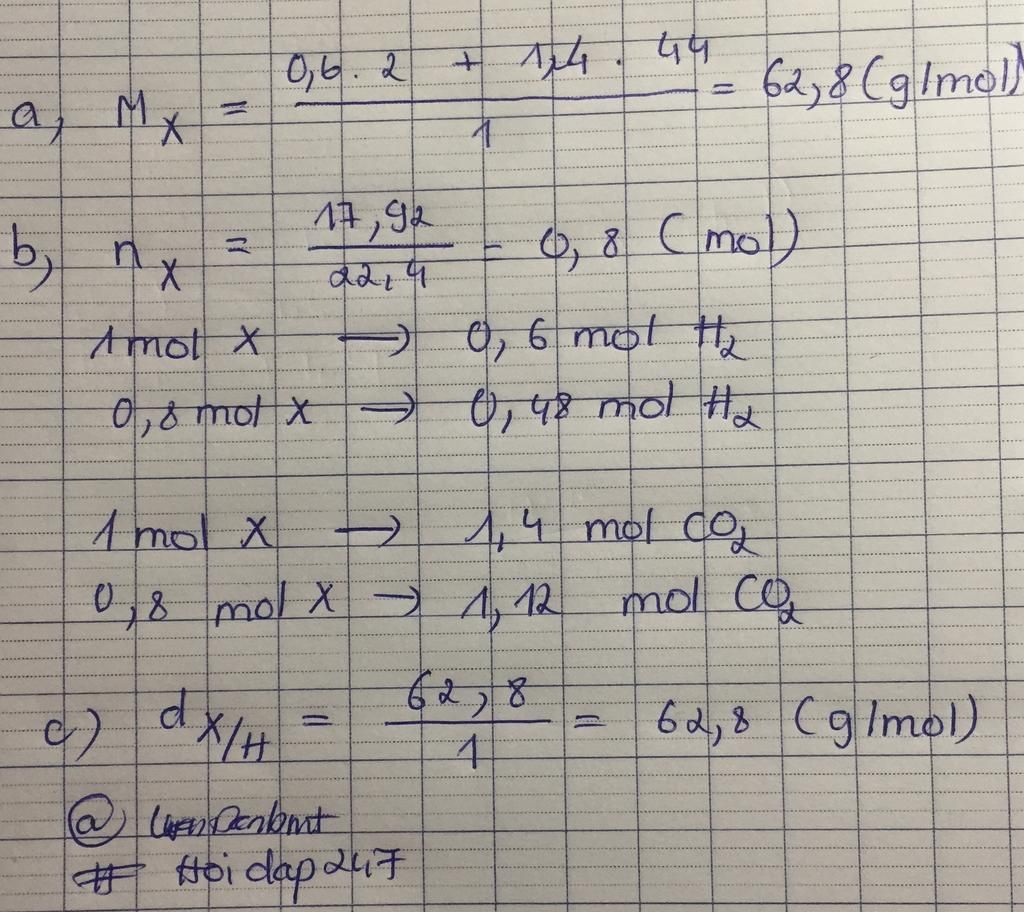 a, M_X = (0,6 . 2 + 1,4 . 44)/1 = 62,8 (g/mol)
b, n_X = 17,92/22,4 = 0,8 (mol)
1 mol X → 0,6 mol H₂
0,8 mol X → 0,48 mol H₂
1 mol X → 1,4 mol CO₂
0,8 mol X → 1,12 mol CO₂
c) d_X/H = 62,8/1 = 62,8 (g/mol)
@
# Hoidap247